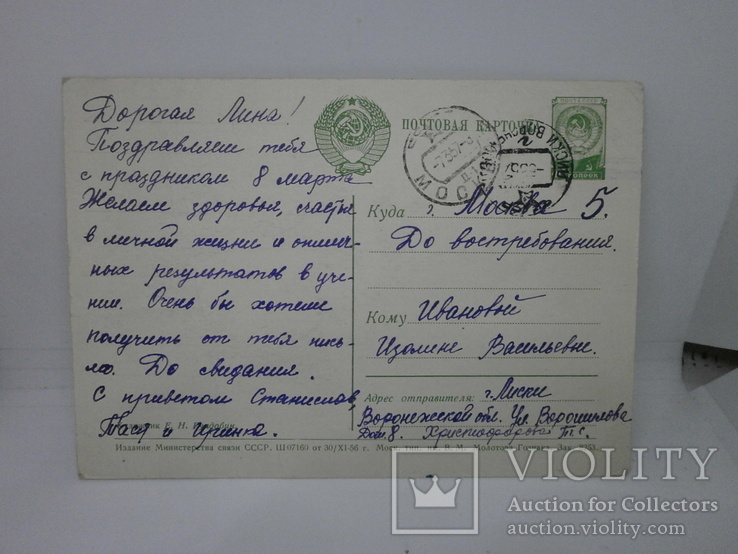 Дорогая Лина!
Поздравляем тебя
с праздником 8 марта
Желаем здоровья, счастья
в личной жизни и отлич-
ных результатов в уче-
нии. Очень бы хотели
получить от тебя пись-
мо. До свидания.
С приветом Станислав,
Тася и Иринка.
ПОЧТОВАЯ КАРТОЧКА
МОСКВА
Куда г. Москва 5.
До востребования.
Кому Ивановой
Изолине Васильевне.
Адрес отправителя: г. Лиски
Воронежской обл. Ул Ворошилова
Дом. 8.
Е. Н.
Издание Министерства связи СССР. Ш 07160 от 30/XI-56 г. Моск. тип.
VIOLITY
Auction for Collectors
auction.violity.com